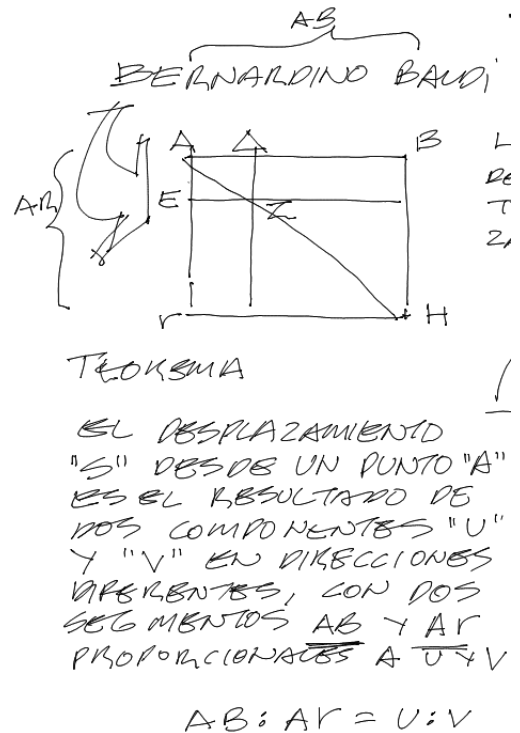 AB
BERNARDINO BALDI
A Δ B
L
DE
E Z
T
ZA
Γ H
TEOREMA
EL DESPLAZAMIENTO
"S" DESDE UN PUNTO "A"
ES EL RESULTADO DE
DOS COMPONENTES "U"
Y "V" EN DIRECCIONES
DIFERENTES, CON DOS
SEGMENTOS AB Y AΓ
PROPORCIONALES A U Y V
AB : AΓ = U : V